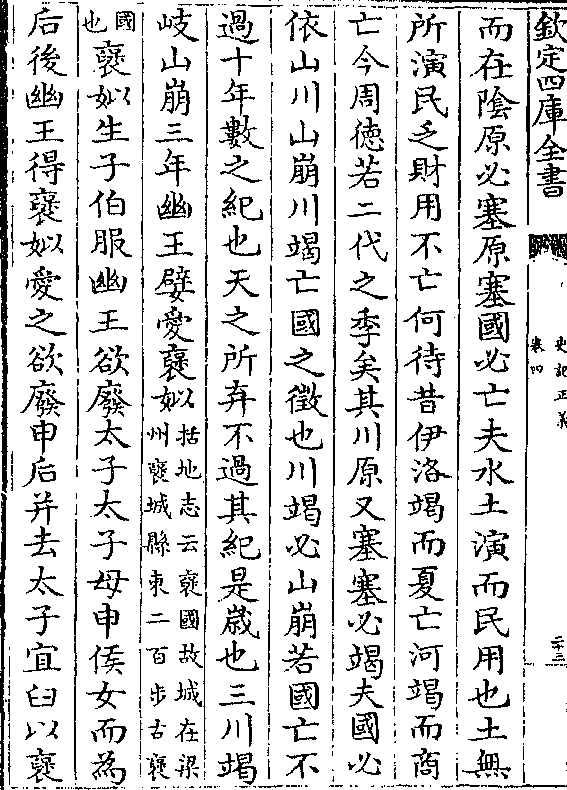 欽定四庫全書
史記正義
卷四
二十三
而在陰原必塞原塞國必亡夫水土演而民用也土無
所演民乏財用不亡何待昔伊洛竭而夏亡河竭而商
亡今周德若二代之季矣其川原又塞塞必竭夫國必
依山川山崩川竭亡國之徵也川竭必山崩若國亡不
過十年數之紀也天之所弃不過其紀是歲也三川竭
岐山崩三年幽王嬖愛襃姒括地志云襃國故城在梁
州襃城縣東二百步古襃
國
也襃姒生子伯服幽王欲廢太子太子母申侯女而為
后後幽王得襃姒愛之欲廢申后并去太子宜臼以襃